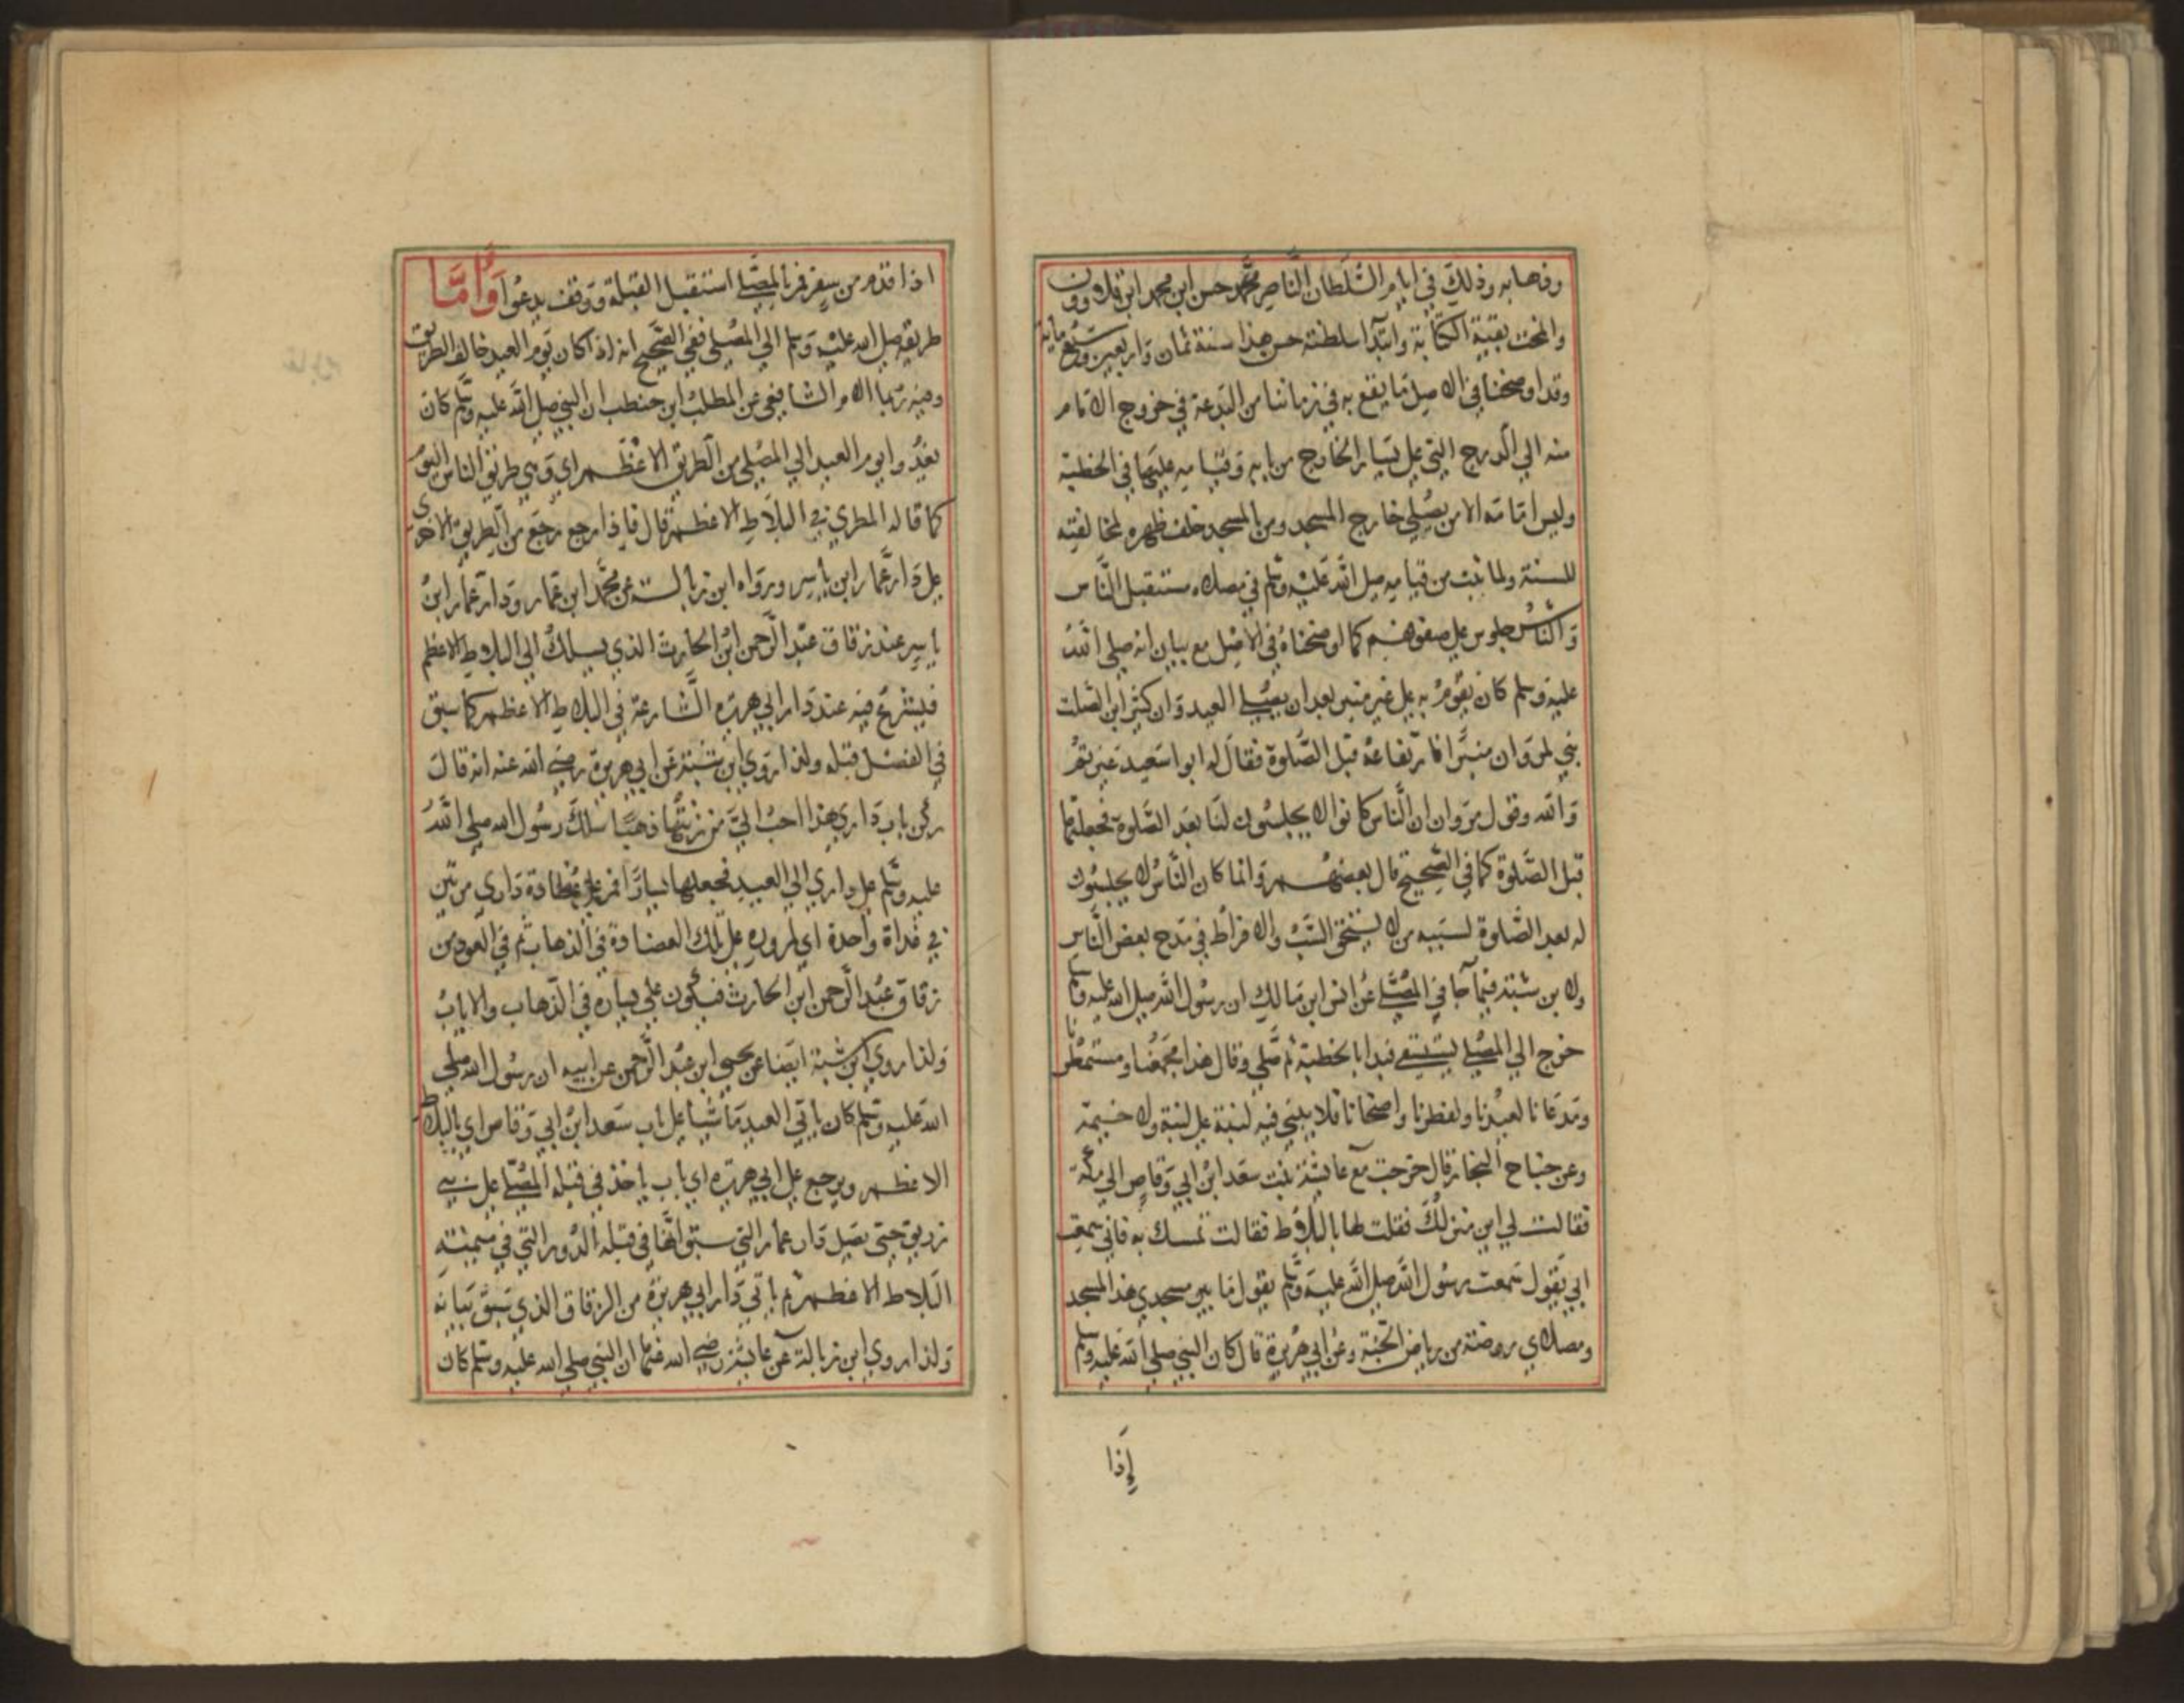 وذهابه وذلك في ايام السلطان الناصر محمد حسن ابن محمد ابن قلاوون
وانمحت بقية الكتابة وابتدآ سلطنة حسن هذا سنة ثمان واربعين وسبع مايه
وقد اوضحنا في الاصل ما يقع به في زماننا من البدعة في خروج الامام
منه الي الدرج التي علي يسار الخارج من بابه وقيامه عليها في الخطبة
وليس امامه الا من يصلي خارج المسجد ومن المسجد خلف ظهره لمخالفته
للسنة ولما ثبت من قيامه صلي الله عليه وسلم في مصلاه مستقبل الناس
والناس جلوس علي صفوفهم كما اوضحناه في الاصل مع بيان انه صلي الله
عليه وسلم كان يقوم به علي غير منبر بعد ان يصلي العيد وان كثير ابن الصلت
بني لمروان منبرا فارتفاعه قبل الصلوة فقال له ابوا سعيد غيرتم
والله وقول مروان ان الناس كانوا لا يجلسون لنا بعد الصلوة فجعلتها
قبل الصلوة كما في الصحيح قال بعضهم وانما كان الناس لا يجلسون
له بعد الصلوة لسببه من لا يستحق السب والافراط في مدح بعض الناس
ولابن شبة فيما جا في المصلي عن انس ابن مالك ان رسول الله صلي الله عليه وسلم
خرج الي المصلي يستسقي فبدا بالخطبة ثم صلي وقال هذا مجمعنا ومستمطرنا
ومدعانا لعيدنا ولفطرنا واضحانا فلا يبني فيه لبنة علي لبنة ولا خيمة
وعن جناح النجار قال خرجت مع عايشة بنت سعد ابن ابي وقاص الي مكة
فقالت لي اين منزلك فقلت لها بالبلاط فقالت تمسك به فاني سمعت
ابي يقول سمعت رسول الله صلي الله عليه وسلم يقول ما بين مسجدي هذا المسجد
ومصلاي روضة من رياض الجنة وعن ابي هريرة قال كان النبي صلي الله عليه وسلم
إذا
اذا قدم من سفر فمر بالمصلي استقبل القبلة ووقف يدعوا وأما
طريقه صلي الله عليه وسلم الي المصلي ففي الصحيح انه اذا كان يوم العيد خالف الطريق
وفيه الام الشافعي عن المطلب ابن حنطب ان النبي صلي الله عليه وسلم كان
يغدوا يوم العيد الي المصلي من الطريق الاعظم اي وهي طريق الناس اليوم
كما قاله المطري في البلاط الاعظم قال فاذا رجع رجع من الطريق الاخري
علي دار عمار ابن ياسر ورواه ابن زبالة عن محمد ابن عمار ودار عمار ابن
ياسر عند زقاق عبد الرحمن ابن الحارث الذي يسلك الي البلاط الاعظم
فيشرع فيه عند دار ابي هريره الشارعة في البلاط الاعظم كما سبق
في الفصل قبله ولذا روي ابن شبة عن ابي هريرة رضي الله عنه انه قال
ركن باب داري هذا احب الي من زنتها ذهبا سلك رسول الله صلي الله
عليه وسلم علي داري الي العيد فجعلها يسارا فمر علي عضادة داري مرتين
في غداة واحدة اي لمروره علي تلك العضادة في الذهاب ثم في العود من
زقاق عبد الرحمن ابن الحارث فيكون علي يساره في الذهاب والاياب
ولذا روي ابن شبة ايضا عن يحيي ابن عبد الرحمن عن ابيه ان رسول الله صلي
الله عليه وسلم كان ياتي العيد ماشيا علي باب سعد ابن ابي وقاص اي بالبلاط
الاعظم ويرجع علي ابي هريره اي ياب ياخذ في قبلة المصلي علي بني
زريق حتي يصل دار عمار التي سبق انها في قبلة الدور التي في ميمنته
البلاط الاعظم ثم ياتي دار ابي هريرة من الزقاق الذي سبق بيانه
ولذا روي ابن زبالة عن عايشة رضي الله عنها ان النبي صلي الله عليه وسلم كان